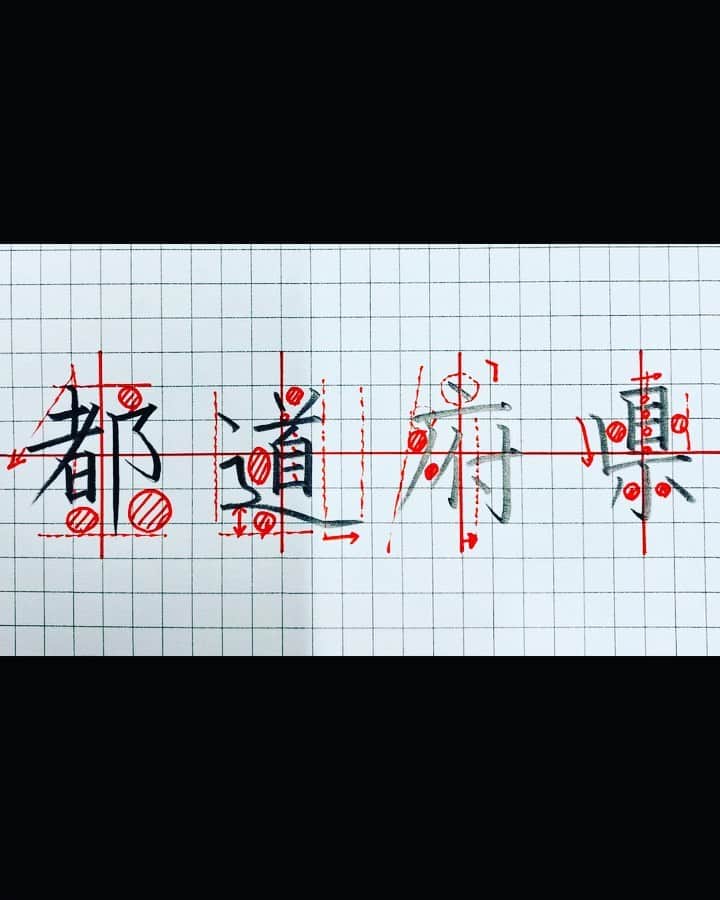 都道府県